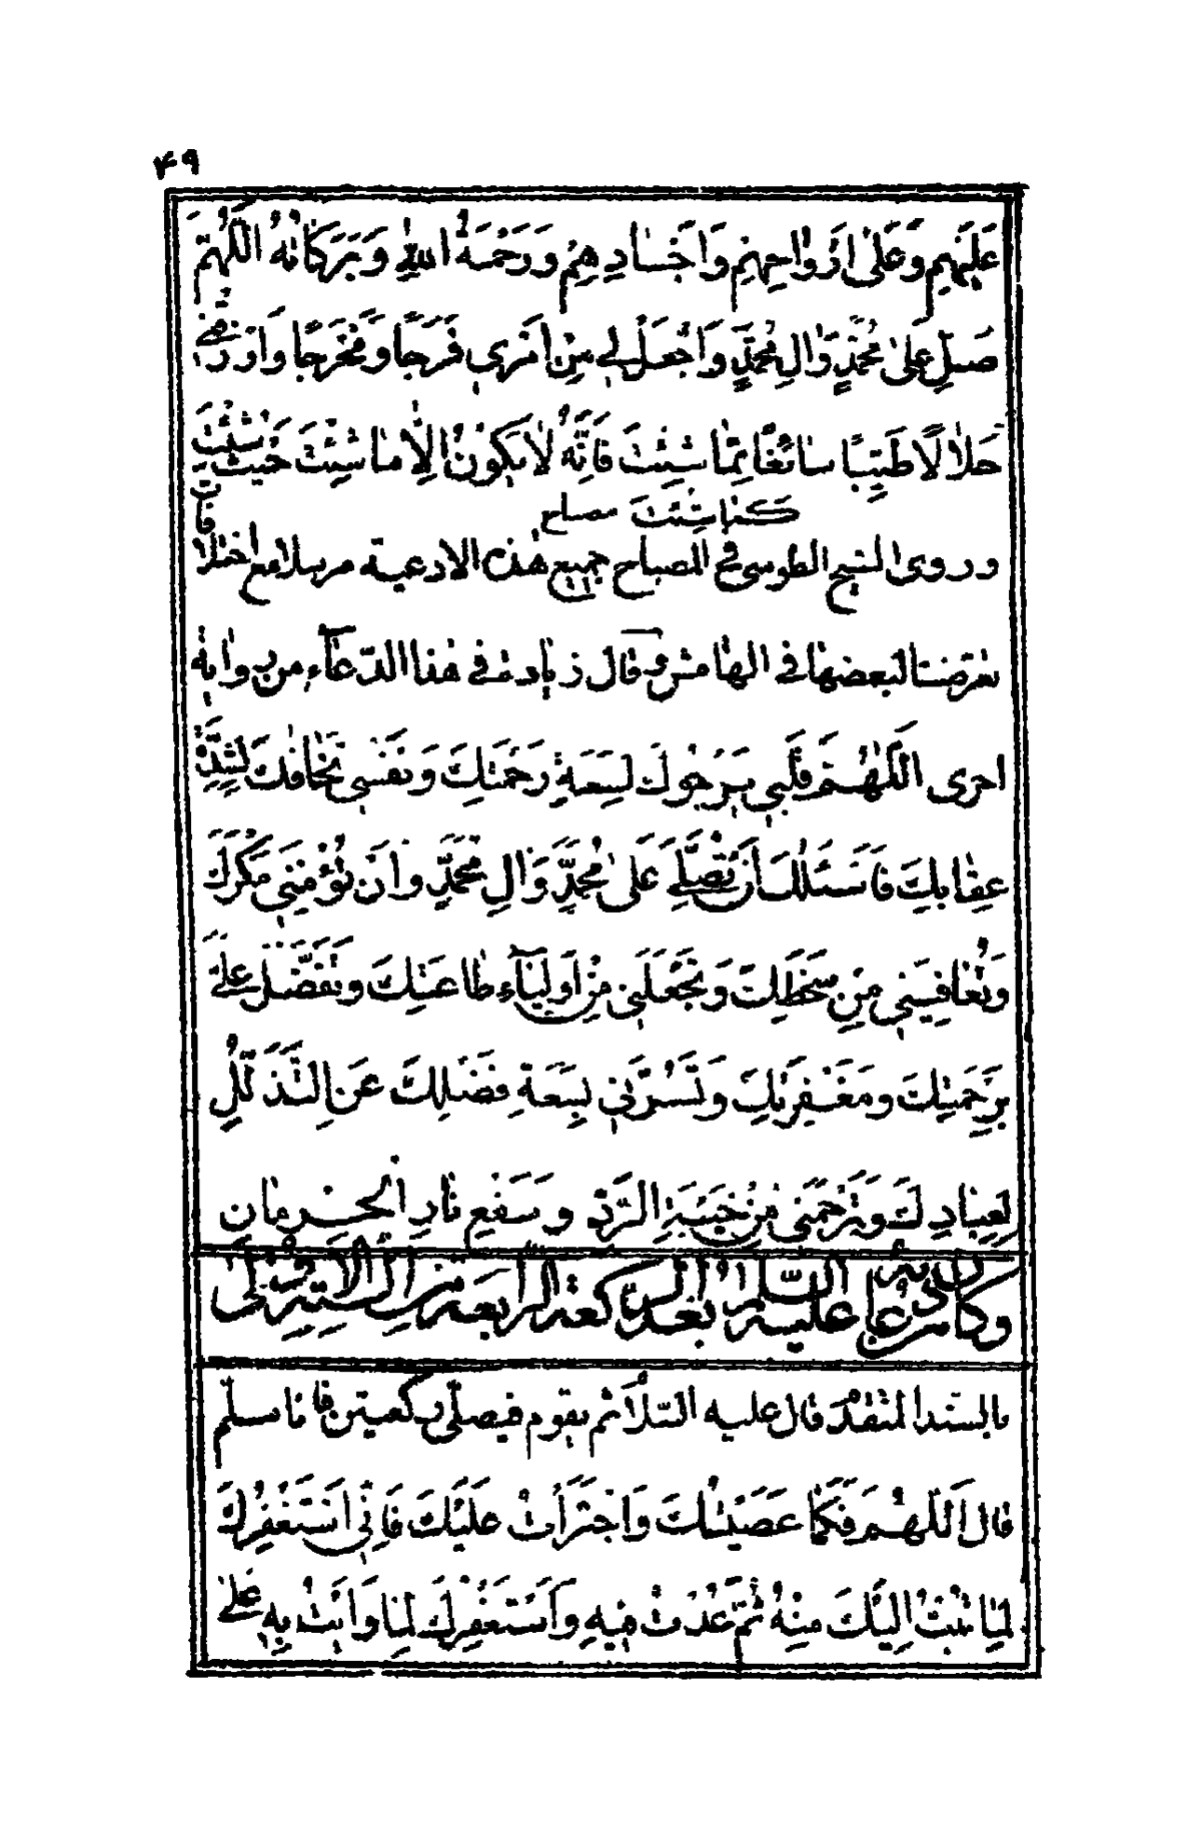 ۴۹
عَلَيْهِمْ وَعَلىٰ اَرْوٰاحِهِمْ وَاَجْسٰادِهِمْ وَرَحْمَةُ اللّٰهِ وَبَرَكٰاتُهُ اَللّٰهُمَّ
صَلِّ عَلىٰ مُحَمَّدٍ وَاٰلِ مُحَمَّدٍ وَاجْعَلْ لي مِنْ اَمْرى فَرَجًا وَمَخْرَجًا وَارْزُقْنى
حَلاٰلاً طَيِّبًا سٰائِغًا مِمّٰا شِئْتَ فَاِنَّهُ لاٰ يَكُونُ اِلاّٰ مٰا شِئْتَ حَيْثُ شِئْتَ
كَمٰا شِئْتَ مصباح
وروى الشيخ الطوسى فى المصباح جميع هذه الادعية مرسلا مع اختلافات
تعرضنا لبعضها فى الهامش وقال زيادة فى هذا الدّعاء من رواية
اخرى اَللّٰهُمَّ قَلْبى يَرْجُوكَ لِسَعَةِ رَحْمَتِكَ وَنَفْسى تَخٰافُكَ لِشِدَّةِ
عِقٰابِكَ فَاَسْئَلُكَ اَنْ تُصَلِّىَ عَلىٰ مُحَمَّدٍ وَاٰلِ مُحَمَّدٍ وَاَنْ تُؤْمِنَنى مَكْرَكَ
وَتُعٰافِيَنى مِنْ سَخَطِكَ وَتَجْعَلَنى مِنْ اَوْلِيٰاءِ طٰاعَتِكَ وَتَفَضَّلَ عَلَىَّ
بِرَحْمَتِكَ وَمَغْفِرَتِكَ وَتَسُرَّنى بِسَعَةِ فَضْلِكَ عَنِ التَّذَلُّلِ
لِعِبٰادِكَ وَتَرْحَمَنى مِنْ خَيْبَةِ الرَّدِّ وَسَفْعِ نٰارِ الْحِرْمٰانِ
وكان من دعائه عليه السلام بعد الركعة الرابعة من الستّ الاولى
بالسند المتقدّم قال عليه السّلام ثم يقوم فيصلّى ركعتين فاذا سلّم
قال اَللّٰهُمَّ فَكَمٰا عَصَيْتُكَ وَاجْتَرَأْتُ عَلَيْكَ فَاِنّى اَسْتَغْفِرُكَ
لِمٰا تُبْتُ اِلَيْكَ مِنْهُ ثُمَّ عُدْتُ فيهِ وَاَسْتَغْفِرُكَ لِمٰا وَاَيْتُ بِهِ عَلىٰ